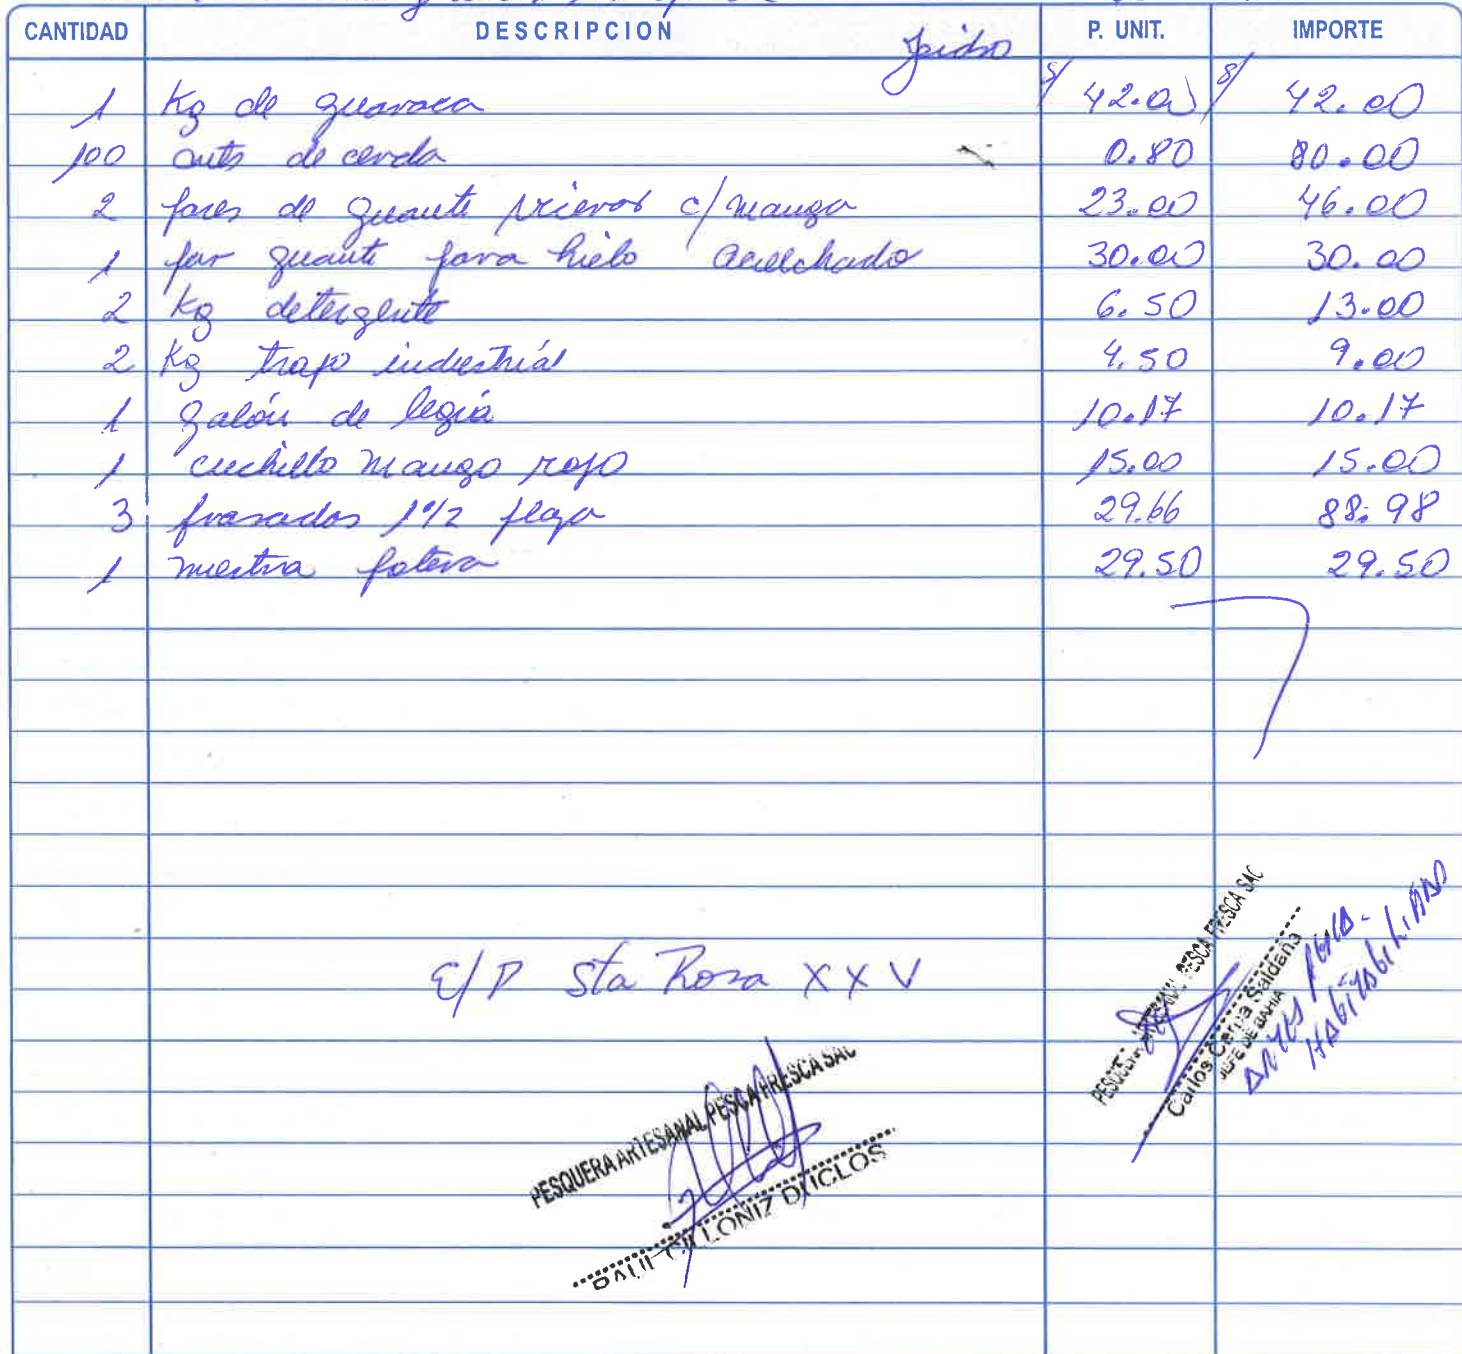 CANTIDAD DESCRIPCION P. UNIT. IMPORTE
1 Kg de guaraca S/ 42.00 S/ 42.00
100 de cerda 0.80 80.00
2 pares de guante c/ manga 23.00 46.00
1 par guante para hielo acolchado 30.00 30.00
2 Kg detergente 6.50 13.00
2 Kg trapo industrial 4.50 9.00
1 galón de legía 10.17 10.17
1 cuchillo mango rojo 15.00 15.00
3 1 1/2 29.66 88.98
1 muestra potera 29.50 29.50
E/P Sta Rosa XXV
PESQUERA ARTESANAL PESCA FRESCA SAC
Carlos Saldaña
JEFE DE BAHIA
PESQUERA ARTESANAL PESCA FRESCA SAC
CILLONIZ DUCLOS